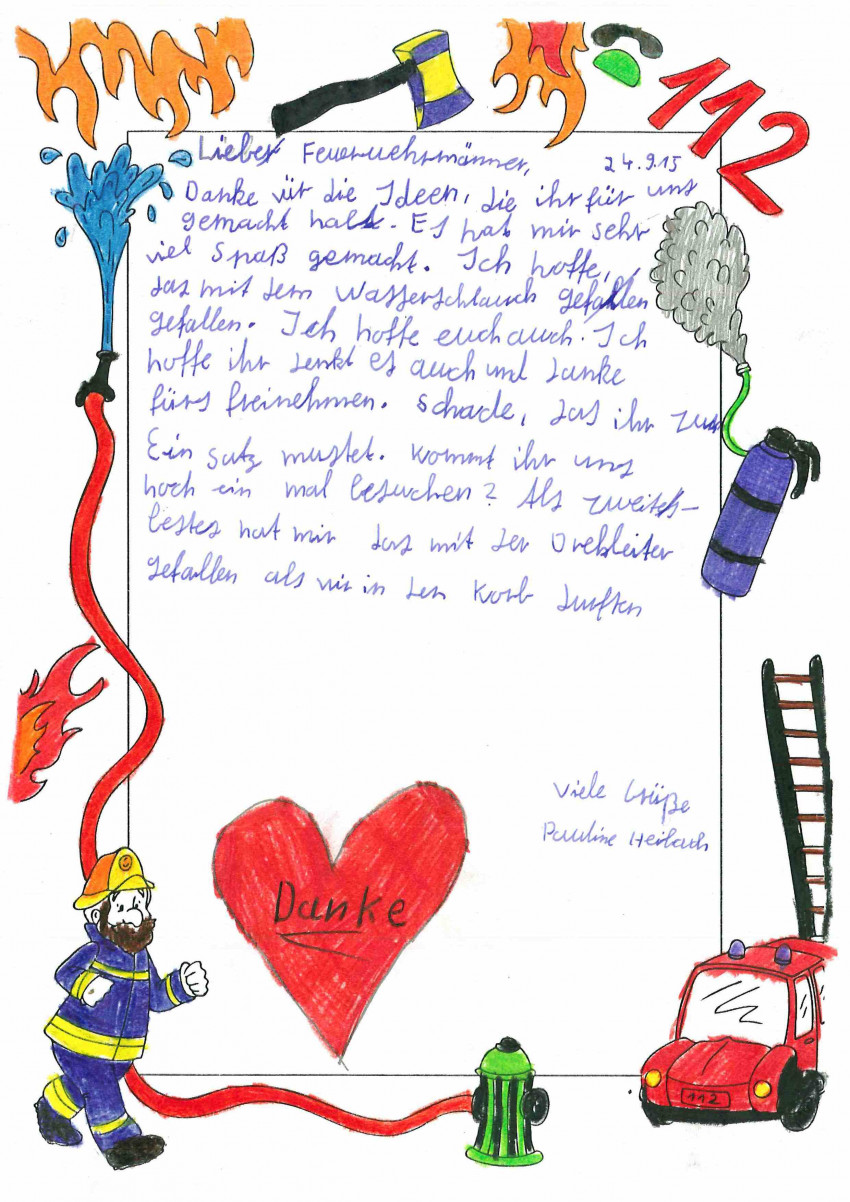 112
Lieber Feuerwehrmänner, 24.9.15
Danke vür die Ideen, die ihr für uns
gemacht habt. Es hat mir sehr
viel Spaß gemacht. Ich hoffe,
das mit dem Wasserschlauch gefallen
gefallen. Ich hoffe euch auch. Ich
hoffe ihr denkt es auch und danke
fürs freinehmen. Schade, das ihr zum
Ein satz mustet. Kommt ihr uns
noch ein mal besuchen? Als zweit-
bestes hat mir das mit der Drehleiter
gefallen als wir in den Korb durften
Viele Grüße
Pauline
Danke
112